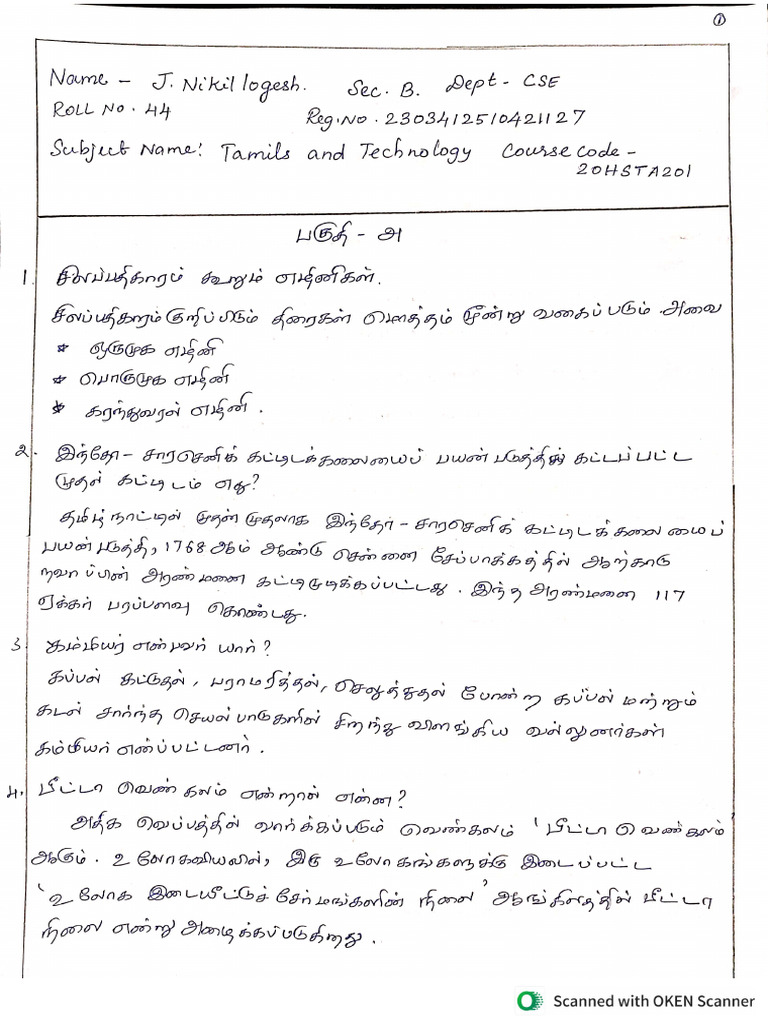 ①
Name - J. Nikil logesh. Sec. B. Dept - CSE
ROLL NO. 44 Reg.No. 2303412510421127
Subject Name: Tamils and Technology Course code -
20HSTA201
பகுதி - அ
1. சிலப்பதிகாரம் கூறும் எழினிகள்.
சிலப்பதிகாரம் குறிப்பிடும் திரைகள் மொத்தம் மூன்று வகைப்படும். அவை
* ஒருமுக எழினி
* பொருமுக எழினி
* கரந்துவரல் எழினி.
2. இந்தோ - சாரசெனிக் கட்டிடக்கலையைப் பயன்படுத்தி கட்டப்பட்ட
முதல் கட்டிடம் எது?
தமிழ் நாட்டில் முதன் முதலாக இந்தோ - சாரசெனிக் கட்டிடக்கலையைப்
பயன்படுத்தி, 1768 ஆம் ஆண்டு சென்னை சேப்பாக்கத்தில் ஆற்காடு
நவாப்பின் அரண்மனை கட்டிமுடிக்கப்பட்டது. இந்த அரண்மனை 117
ஏக்கர் பரப்பளவு கொண்டது.
3. கம்மியர் என்பவர் யார்?
கப்பல் கட்டுதல், பராமரித்தல், செலுத்துதல் போன்ற கப்பல் மற்றும்
கடல் சார்ந்த செயல்பாடுகளில் சிறந்து விளங்கிய வல்லுனர்கள்
கம்மியர் எனப்பட்டனர்.
4. பீட்டா வெண்கலம் என்றால் என்ன?
அதிக வெப்பத்தில் வார்க்கப்படும் வெண்கலம் 'பீட்டா வெண்கலம்'
ஆகும். உலோகவியலில், இரு உலோகங்களுக்கு இடைப்பட்ட
'உலோக இடையீட்டுச் சேர்மங்களின் நிலை' ஆங்கிலத்தில் பீட்டா
நிலை என்று அழைக்கப்படுகிறது.
Scanned with OKEN Scanner